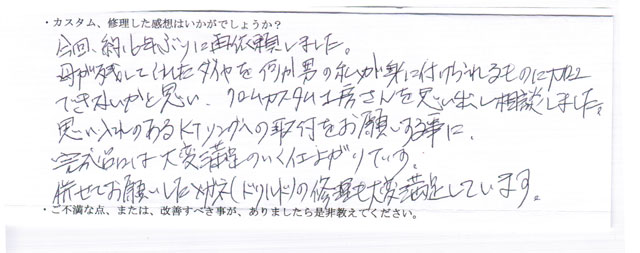 ・カスタム、修理した感想はいかがでしょうか？
今回、約16年ぶりに再依頼しました。
母が残してくれたダイヤを何か男の私が身に付けられるものに加工
できないかと思い、クロムカスタム工房さんを思い出し相談しました。
思い入れのあるKTリングへの取付をお願いする事に。
完成品には大変満足のいく仕上がりです。
併せてお願いしたメガネ(ドリルド)の修理も大変満足しています。
・ご不満な点、または、改善すべき事が、ありましたら是非教えてください。